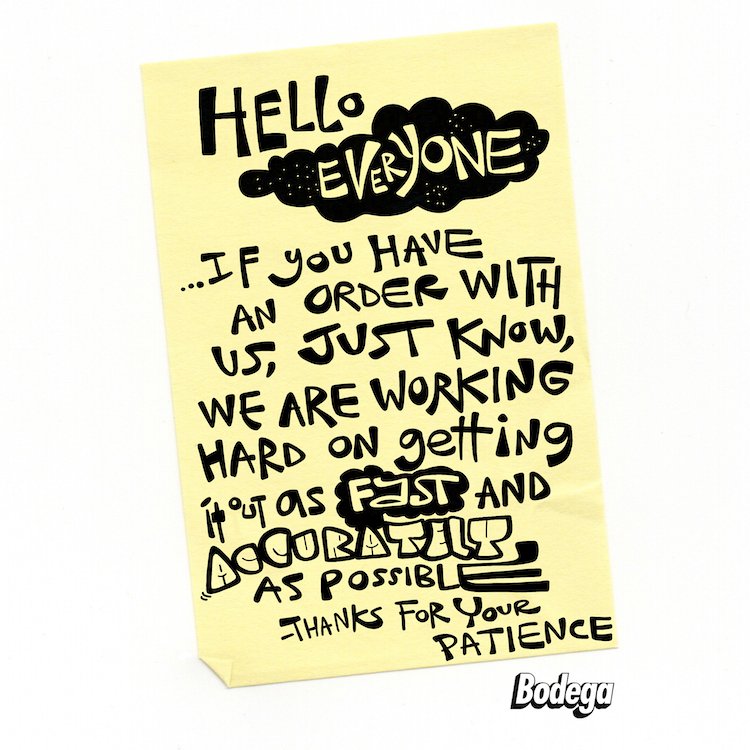 HELLO
EVERYONE
...IF YOU HAVE
AN ORDER WITH
US, JUST KNOW,
WE ARE WORKING
HARD ON getting
it out as FAST AND
ACCURATELY
AS POSSIBLE
-THANKS FOR YOUR
PATIENCE
Bodega